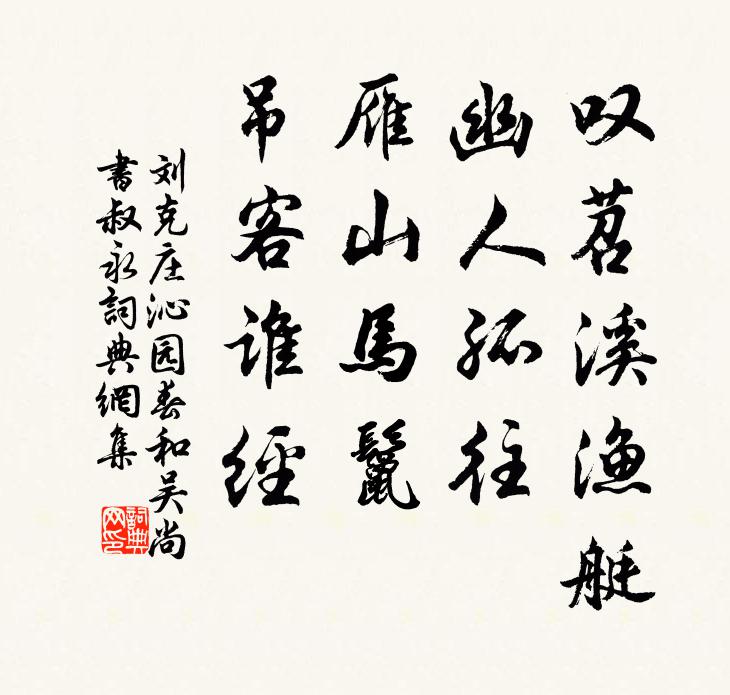 叹苕溪渔艇
幽人孤往
雁山馬鬣
吊客谁經
刘克庄沁园春和吴尚
書叔永詞典網集
詞典
网印